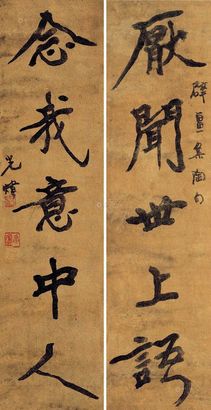 厭聞世上語
辟畺集陶句
念我意中人